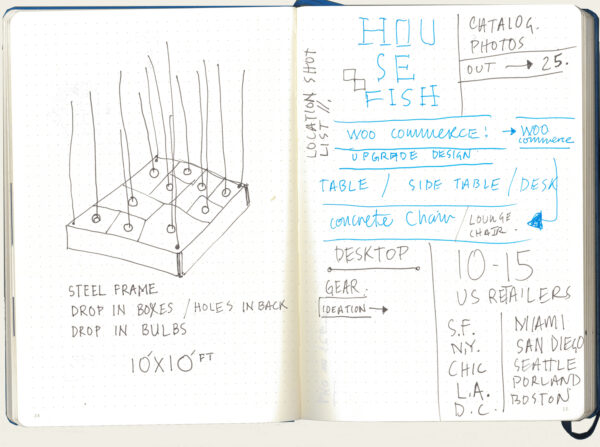 STEEL FRAME
DROP IN BOXES / HOLES IN BACK
DROP IN BULBS
10'X10' FT
LOCATION SHOT
LIST //.
HOU
SE
FISH
CATALOG.
PHOTOS
OUT → 25.
WOO COMMERCE! → WOO
COMMERCE
UPGRADE DESIGN
TABLE / SIDE TABLE / DESK
CONCRETE CHAIR / LOUNGE
CHAIR.
DESKTOP
GEAR.
IDEATION →
10-15
US RETAILERS
S.F.
N.Y.
CHIC
L.A.
D.C.
MIAMI
SAN DIEGO
SEATTLE
PORLAND
BOSTON